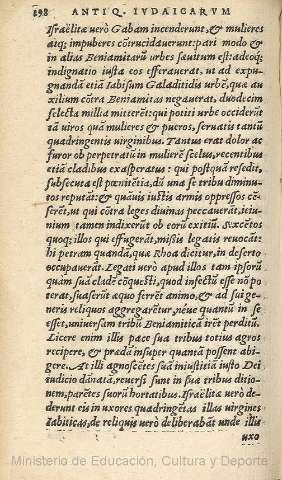 298 ANTIQ. IVDAICARVM
Israëlitæ verò Gabam incenderunt, & mulieres
atq; impuberes cōtrucidauerunt: pari modo &
in alias Beniamitarū vrbes sæuitum est: adeoq;
indignatio iusta eos efferauerat, vt ad expu-
gnandā etiā Iabisum Galaditidis vrbē, quæ au
xilium cōtra Beniamitas negauerat, duodecim
selecta millia mitterēt: qui potiti vrbe occiderūt
tā viros quā mulieres & pueros, seruatis tantū
quadringentis virginibus. Tantus erat dolor ac
furor ob perpetratū in muliere scelus, recentibus
etiā cladibus exasperatus: qui postquā resedit,
subsecuta est pœnitētia, dū una se tribu diminu-
tos reputāt: & quāuis iustis armis oppressos cē-
serēt, ut qui cōtra leges diuinas peccauerāt, ieiu-
nium tamen indixerūt ob eorū exitiū. Sexcētos
quoq; illos qui effugerāt, missis legatis reuocāt:
hi petram quandā, quæ Rhoa dicitur, in deserto
occupauerāt. Legati uerò apud illos tam ipsorū
quam suā cladē cōquesti, quod infectū esse nō po
terat, suaserūt æquo ferrēt animo, & ad sui ge-
neris reliquos aggregarētur, néue quantū in se
esset, uniuersam tribū Beniamiticā irēt perditū.
Licere enim illis pace sua tribus totius agros
recipere, & prædā insuper quantā possent abi-
gere. At illi agnoscētes suā iniustitiā iusto Dei
iudicio dānatā, reuersi sunt in sua tribus ditio-
nem, parētes suorū hortatibus. Israëlitæ uerò de-
derunt eis in uxores quadringētas illas uirgines
Iabiticas, de reliquis uerò deliberabāt unde illis
uxo
Ministerio de Educación, Cultura y Deporte